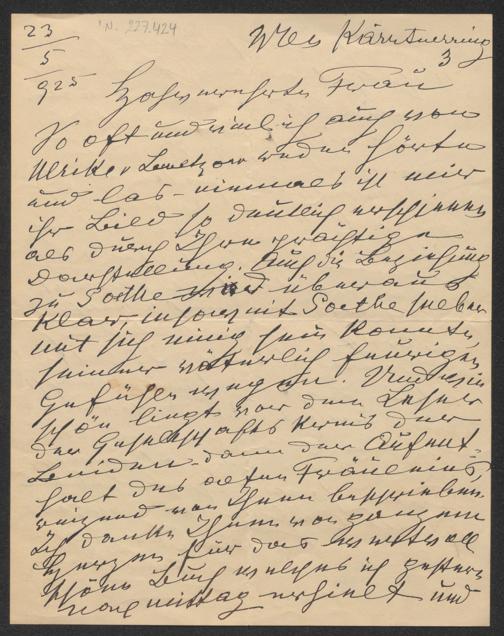 23
5
925
N. 227.424
Wien Kärntnerring
3
Hochverehrte Frau
So oft und viel ich auch von
Ulrike v Levetzow reden hörte
und las – niemals ist mir
ihr Bild so deutlich erschienen
als durch Ihre prächtige
Darstellung. Auch die Beziehung
zu Goethe wird überaus
klar, insoweit Goethe selber
mit sich einig sein konnte,
seiner väterlich feurigen
Gefühle wegen. Und wie
schön liegt vor dem Leser
der Gesellschafts Kreis der
Beiden – dann der Aufent-
halt des alten Fräuleins,
reizend von Ihnen beschrieben.
Ich danke Ihnen von ganzem
Herzen für das wertvoll
schöne Buch welches ich gestern
nachmittag erhielt und